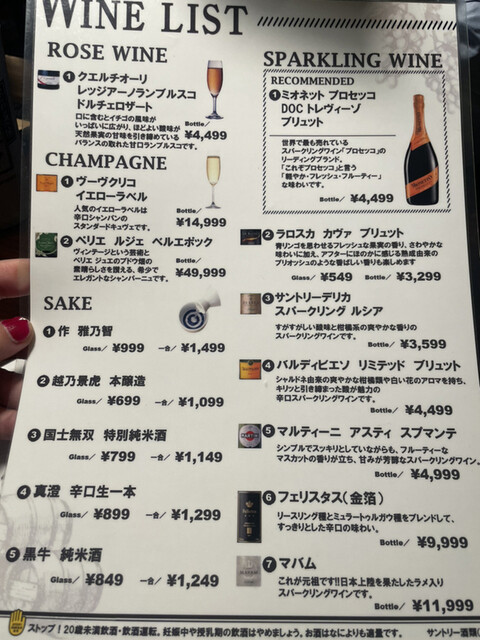 WINE LIST
ROSE WINE
❶ クエルチオーリ
レッジアーノランブルスコ
ドルチェロザート
口に含むとイチゴの風味が
いっぱいに広がり、ほどよい酸味が
天然果実の甘味を引き締めている
バランスの取れた甘口ランブルスコです。
Bottle/
¥4,499
CHAMPAGNE
❶ ヴーヴクリコ
イエローラベル
人気のイエローラベルは
辛口シャンパンの
スタンダードキュヴェです。
Bottle/
¥14,999
❷ ペリエ ルジェ ベルエポック
ヴィンテージという芸術と
ペリエ ジュエのブドウ畑の
素晴らしさを讃える、希少で
エレガントなシャンパーニュです。
Bottle/
¥49,999
SAKE
❶ 作 雅乃智
Glass/ ¥999 一合/ ¥1,499
❷ 越乃景虎 本醸造
Glass/ ¥699 一合/ ¥1,099
❸ 国士無双 特別純米酒
Glass/ ¥799 一合/ ¥1,149
❹ 真澄 辛口生一本
Glass/ ¥899 一合/ ¥1,299
❺ 黒牛 純米酒
Glass/ ¥849 一合/ ¥1,249
SPARKLING WINE
RECOMMENDED
❶ ミオネット プロセッコ
DOC トレヴィーゾ
ブリュット
世界で最も売れている
スパークリングワイン「プロセッコ」の
リーディングブランド。
「これぞプロセッコ」と言う
「軽やか・フレッシュ・フルーティー」
な味わいです。
Bottle/ ¥4,499
❷ ラロスカ カヴァ ブリュット
青リンゴを思わせるフレッシュな果実の香り、さわやかな
味わいに加え、アフターにほのかに感じる熟成由来の
ブリオッシュのような香ばしい香りも楽しめます
Glass/ ¥549 Bottle/ ¥3,299
❸ サントリーデリカ
スパークリング ルシア
すがすがしい酸味と柑橘系の爽やかな香りの
スパークリングワインです。
Bottle/ ¥3,599
❹ バルディビエソ リミテッド ブリュット
シャルドネ由来の爽やかな柑橘類や白い花のアロマを持ち、
キリッと引き締まった酸が魅力の
辛口スパークリングワインです。
Bottle/ ¥4,499
❺ マルティーニ アスティ スプマンテ
シンプルでスッキリとしていながらも、フルーティーな
マスカットの香りが立ち、甘みが芳醇なスパークリングワイン。
Bottle/ ¥4,999
❻ フェリスタス(金箔)
リースリング種とミュラートゥルガウ種をブレンドして、
すっきりとした辛口の味わい。
Bottle/ ¥9,999
❼ マバム
これが元祖です!!日本上陸を果たしたラメ入り
スパークリングワインです。
Bottle/ ¥11,999
ストップ!20歳未満飲酒・飲酒運転。妊娠中や授乳期の飲酒はやめましょう。お酒はなによりも適量です。 サントリー酒類